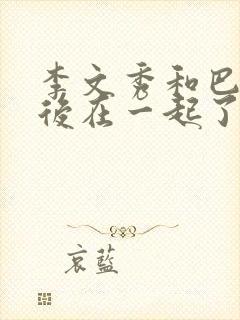 李文秀和巴
後在一起了
哀藍